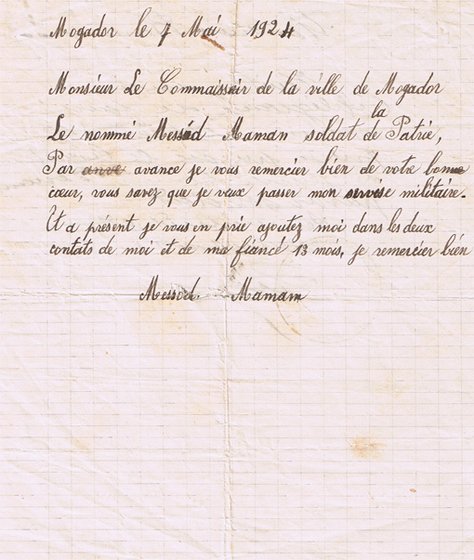 Mogador le 7 Mai 1924
Monsieur Le Commaissair de la ville de Mogador
la
Le nommé Messód Maman soldat de Patrie,
Par anve avance je vous remercier bien de votre bonne
cœur, vous savez que je veux passer mon servese militaire.
Et a présent je vous en prie ajoutez moi dans les deux
contats de moi et de ma fiancé 13 mois, je remercier bien
Messod. Mamam